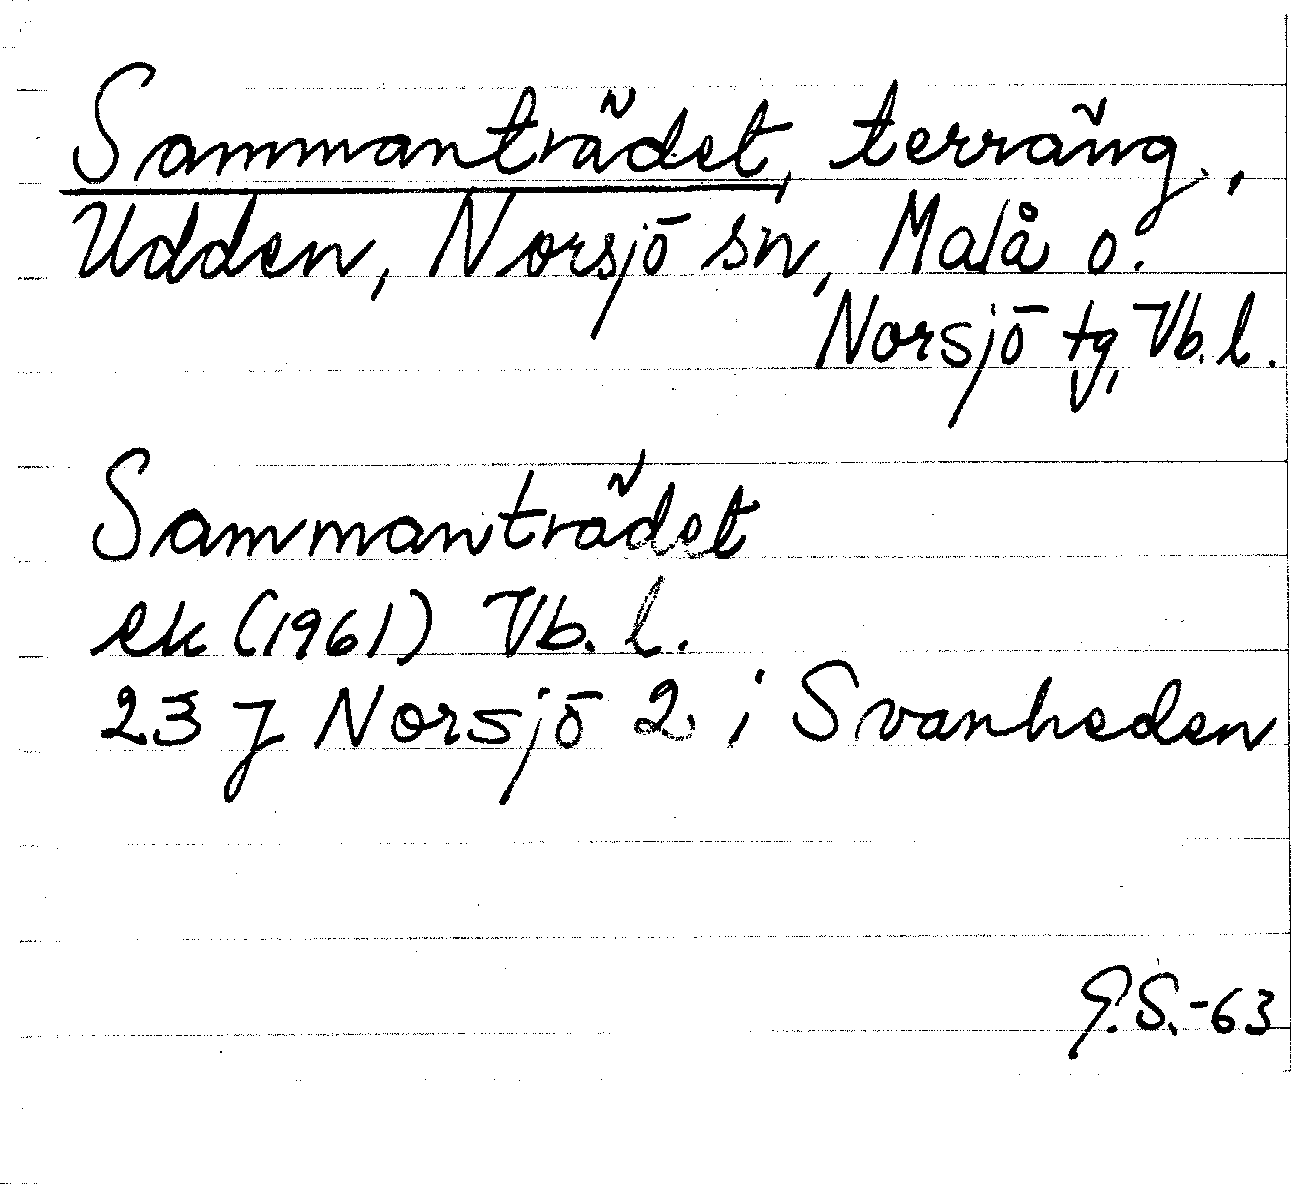 Sammanträdet, terräng,
Udden, Norsjö sn, Malå o.
Norsjö tg, Vb. l.
Sammanträdet
ek (1961) Vb. l.
23 J Norsjö 2 i Svanheden
G.S.-63